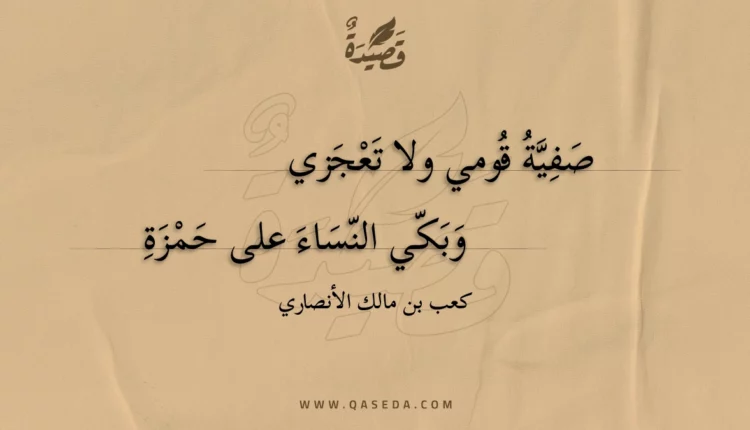 قَصِيْدَةٌ
صَفِيَّةُ قُومي ولا تَعْجَزي
وَبَكّي النّسَاءَ على حَمْزَةِ
كعب بن مالك الأنصاري
WWW.QASEDA.COM